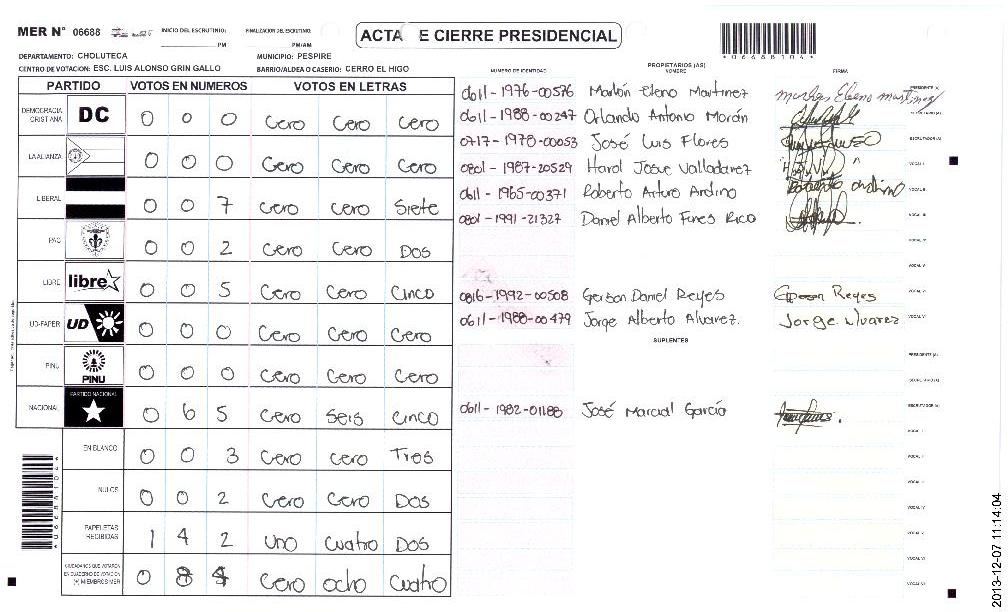 MER N° 06688 INICIO DEL ESCRUTINIO: PM FINALIZACION DEL ESCRUTINIO: PM/AM
ACTA E CIERRE PRESIDENCIAL
06688104
DEPARTAMENTO: CHOLUTECA MUNICIPIO: PESPIRE
CENTRO DE VOTACION: ESC. LUIS ALONSO GRIN GALLO BARRIO/ALDEA O CASERIO: CERRO EL HIGO
PARTIDO VOTOS EN NUMEROS VOTOS EN LETRAS
DEMOCRACIA CRISTIANA DC 0 0 0 Cero Cero Cero
LA ALIANZA 0 0 0 Cero Cero Cero
LIBERAL 0 0 7 Cero Cero Siete
PAC 0 0 2 Cero Cero Dos
LIBRE libre 0 0 5 Cero Cero Cinco
UD-FAPER UD 0 0 0 Cero Cero Cero
PINU PINU 0 0 0 Cero Cero Cero
NACIONAL PARTIDO NACIONAL 0 6 5 Cero Seis Cinco
EN BLANCO 0 0 3 Cero Cero Tres
NULOS 0 0 2 Cero Cero Dos
PAPELETAS RECIBIDAS 1 4 2 Uno Cuatro Dos
CIUDADANOS QUE VOTARON
EN CUADERNO DE VOTACION
(+) MIEMBROS MER 0 8 4 Cero ocho Cuatro
NUMERO DE IDENTIDAD PROPIETARIOS (AS) NOMBRE FIRMA
0611-1976-00576 Marlon Eleno Martinez Marlon Eleno Martinez PRESIDENTE (A)
0611-1988-00247 Orlando Antonio Morán SECRETARIO (A)
0717-1978-00053 José Luis Flores ESCRUTADOR (A)
0801-1987-20529 Harol Josue Valladarez VOCAL I
0611-1965-00371 Roberto Arturo Andino Roberto Andino VOCAL II
0801-1991-21327 Daniel Alberto Funes Rico VOCAL III
VOCAL IV
VOCAL V
0816-1992-00508 Gerson Daniel Reyes Gerson Reyes VOCAL VI
0611-1988-00479 Jorge Alberto Alvarez. Jorge Alvarez
SUPLENTES
PRESIDENTE (A)
SECRETARIO (A)
0611-1982-01188 José Marcial García ESCRUTADOR (A)
VOCAL I
VOCAL II
VOCAL III
VOCAL IV
VOCAL V
VOCAL VI
2013-12-07 11:14:04